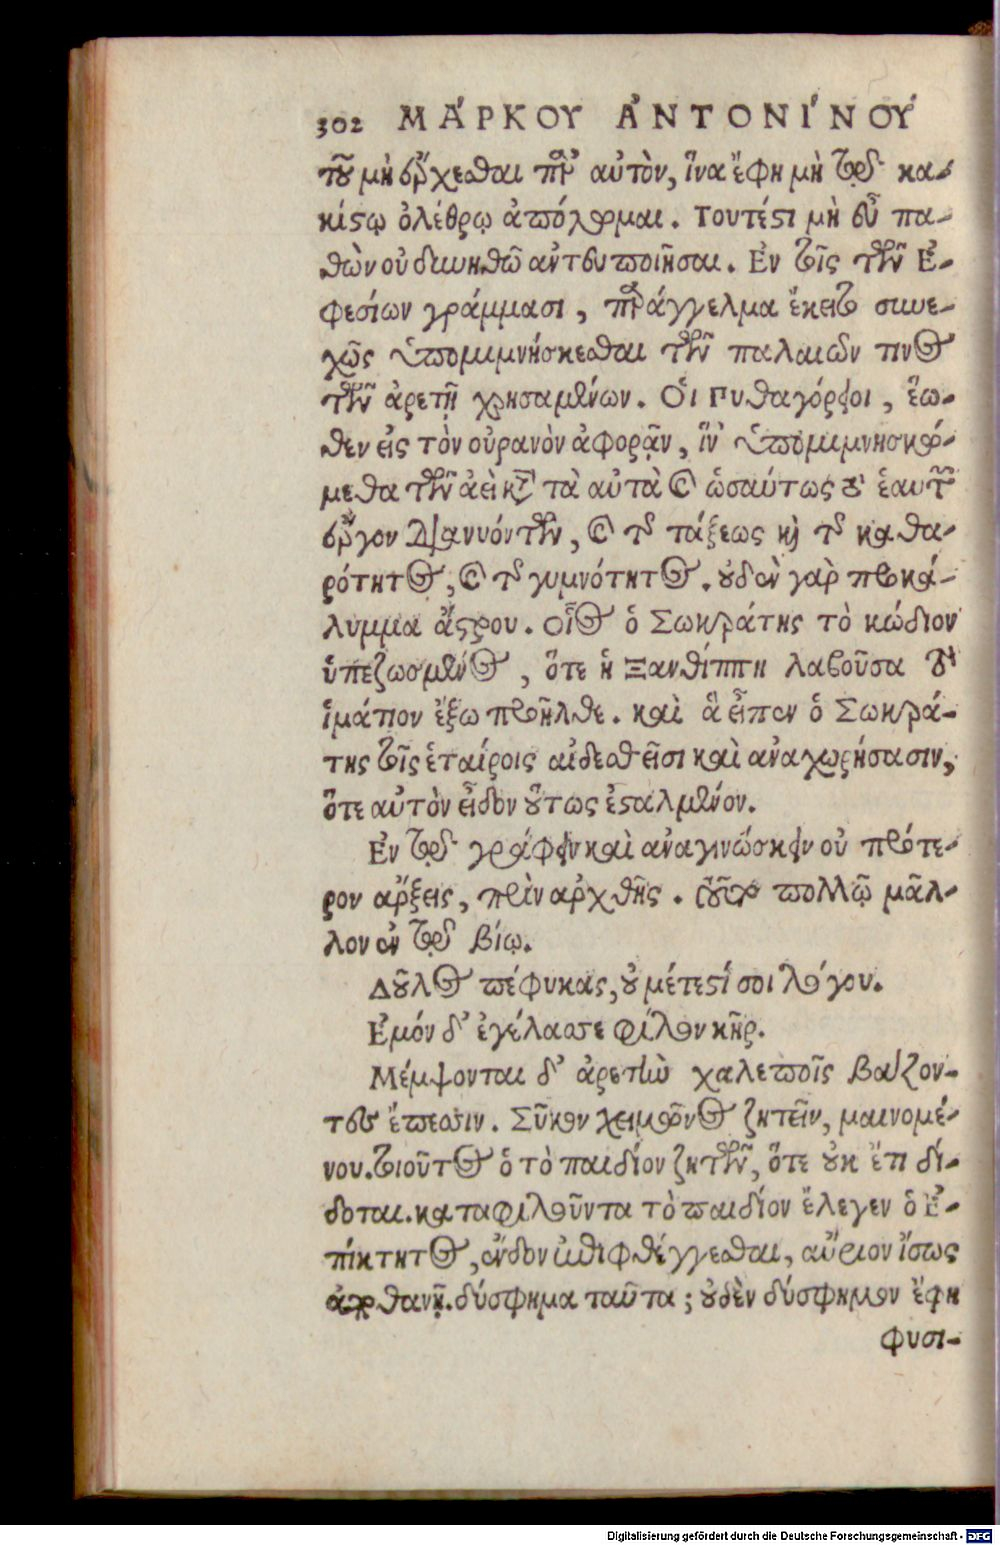 302 ΜΆΡΚΟΥ ἈΝΤΟΝΊΝΟΥ
τοῦ μὴ ἔρχεσθαι παρ’ αὐτὸν, ἵνα ἔφη μὴ τῷ κα-
κίστῳ ὀλέθρῳ ἀπόλωμαι. Τουτέστι μὴ εὖ πα-
θὼν οὐ δυνηθῶ ἀντευποιῆσαι. Ἐν τοῖς τῶν Ἐ-
φεσίων γράμμασι, παράγγελμα ἔκειτο συνε-
χῶς ὑπομιμνήσκεσθαι τῶν παλαιῶν τινος
τῶν ἀρετῇ χρησαμένων. Οἱ Πυθαγόρειοι, ἕω-
θεν εἰς τὸν οὐρανὸν ἀφορᾷν, ἵν’ ὑπομιμνησκώ-
μεθα τῶν ἀεὶ κατὰ τὰ αὐτὰ καὶ ὡσαύτως τὸ ἑαυτῶν
ἔργον διανυόντων, καὶ τῆς τάξεως καὶ τῆς καθα-
ρότητος, καὶ τῆς γυμνότητος. οὐδὲν γὰρ προκά-
λυμμα ἄστρου. Οἷος ὁ Σωκράτης τὸ κώδιον
ὑπεζωσμένος, ὅτε ἡ Ξανθίππη λαβοῦσα τὸ
ἱμάτιον ἔξω προῆλθε. καὶ ἃ εἶπεν ὁ Σωκρά-
της τοῖς ἑταίροις αἰδεσθεῖσι καὶ ἀναχωρήσασιν,
ὅτε αὐτὸν εἶδον οὕτως ἐσταλμένον.
Ἐν τῷ γράφειν καὶ ἀναγινώσκειν οὐ πρότε-
ρον ἄρξεις, πρὶν ἀρχθῇς. τοῦτο πολλῷ μᾶλ-
λον ἐν τῷ βίῳ.
Δοῦλος πέφυκας, οὐ μέτεστί σοι λόγου.
Ἐμόν δ’ ἐγέλασσε φίλον κῆρ.
Μέμψονται δ’ ἀρετὴν χαλεποῖς βάζον-
τες ἔπεσσιν. Σῦκον χειμῶνος ζητεῖν, μαινομέ-
νου. τοιοῦτος ὁ τὸ παιδίον ζητῶν, ὅτε οὐκ ἔτι δί-
δοται. καταφιλοῦντα τὸ παιδίον ἔλεγεν ὁ Ἐ-
πίκτητος, ἔνδον ἐπιφθέγγεσθαι, αὔριον ἴσως
ἀποθανῇ. δύσφημα ταῦτα; οὐδὲν δύσφημον ἔφη
φυσι-
Digitalisierung gefördert durch die Deutsche Forschungsgemeinschaft - DFG